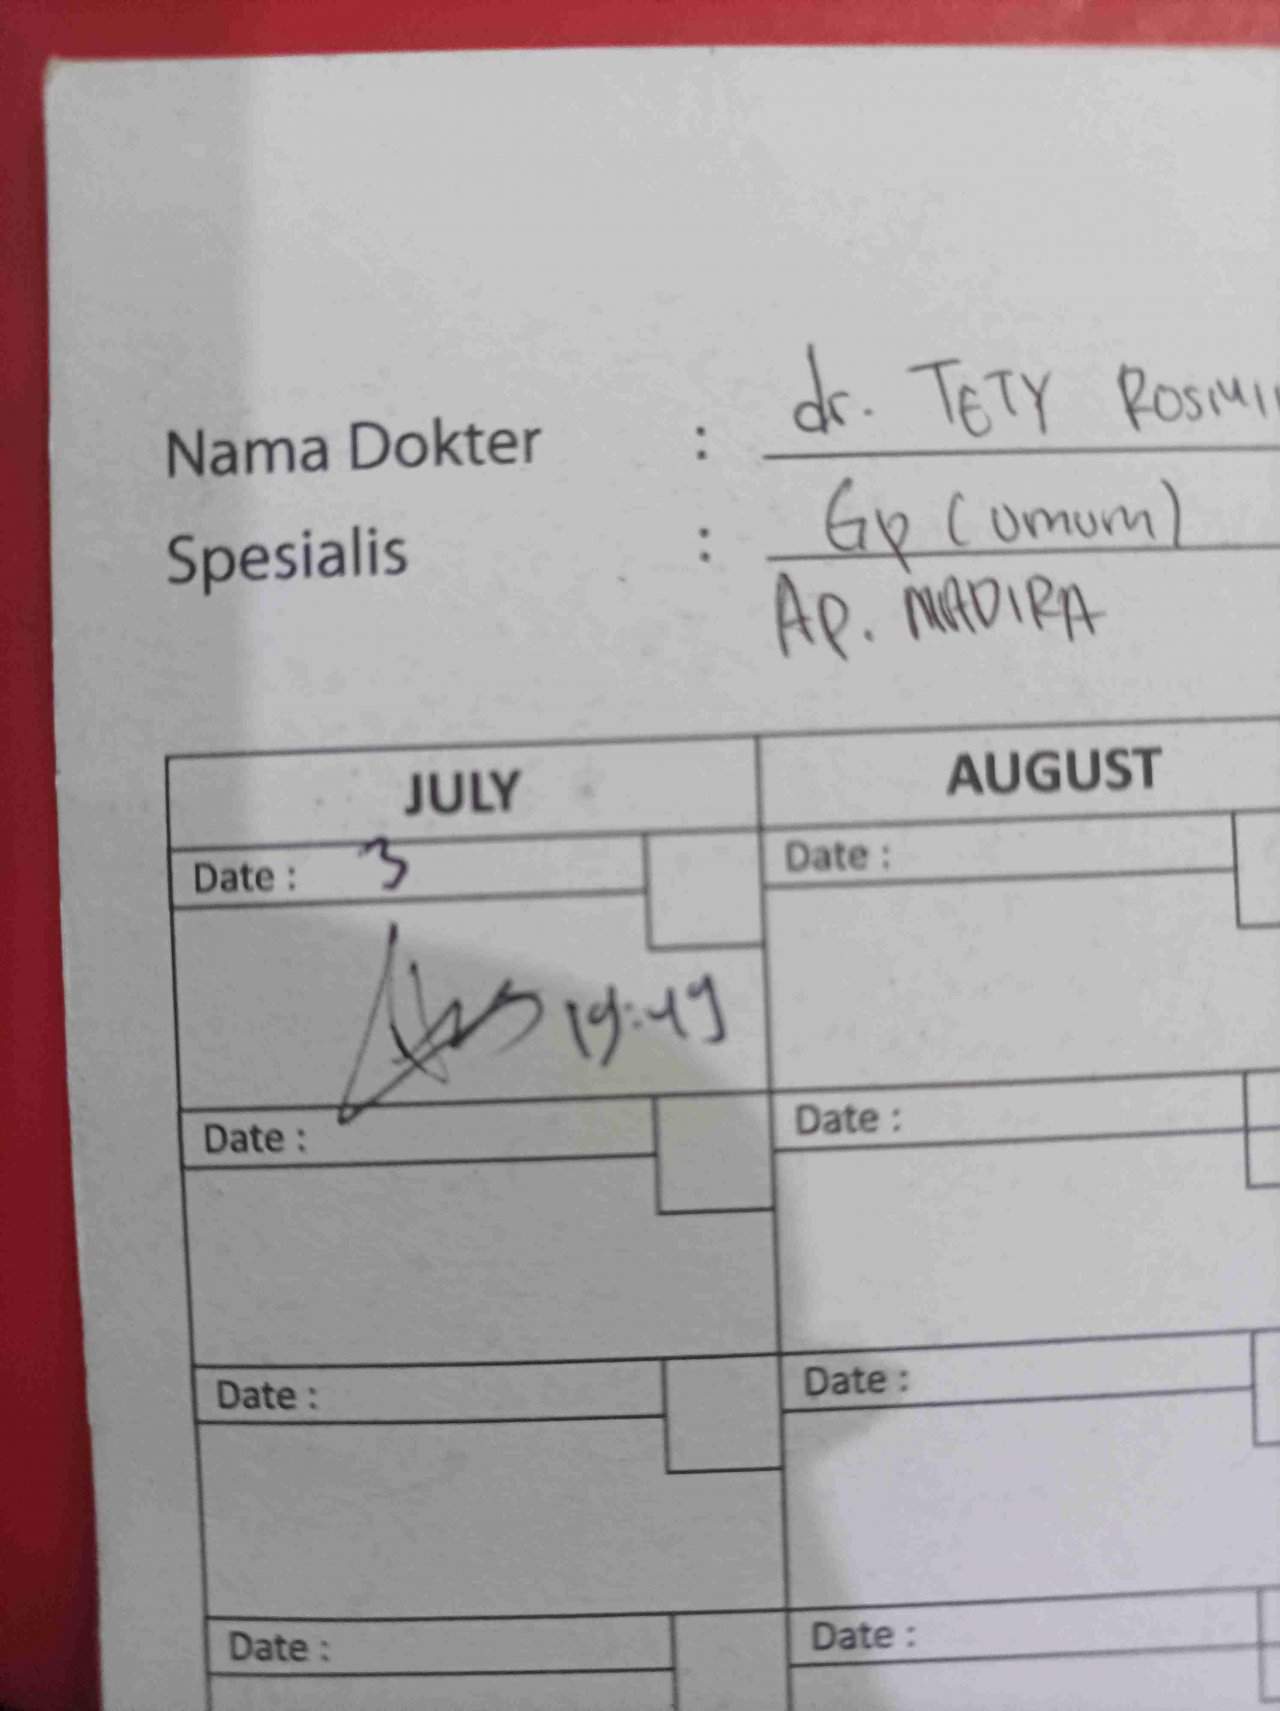 Nama Dokter : dr. TETY
Spesialis : Gp (umum)
Ap. MADIRA
JULY AUGUST
Date : 3 Date :
19:49
Date : Date :
Date : Date :
Date : Date :